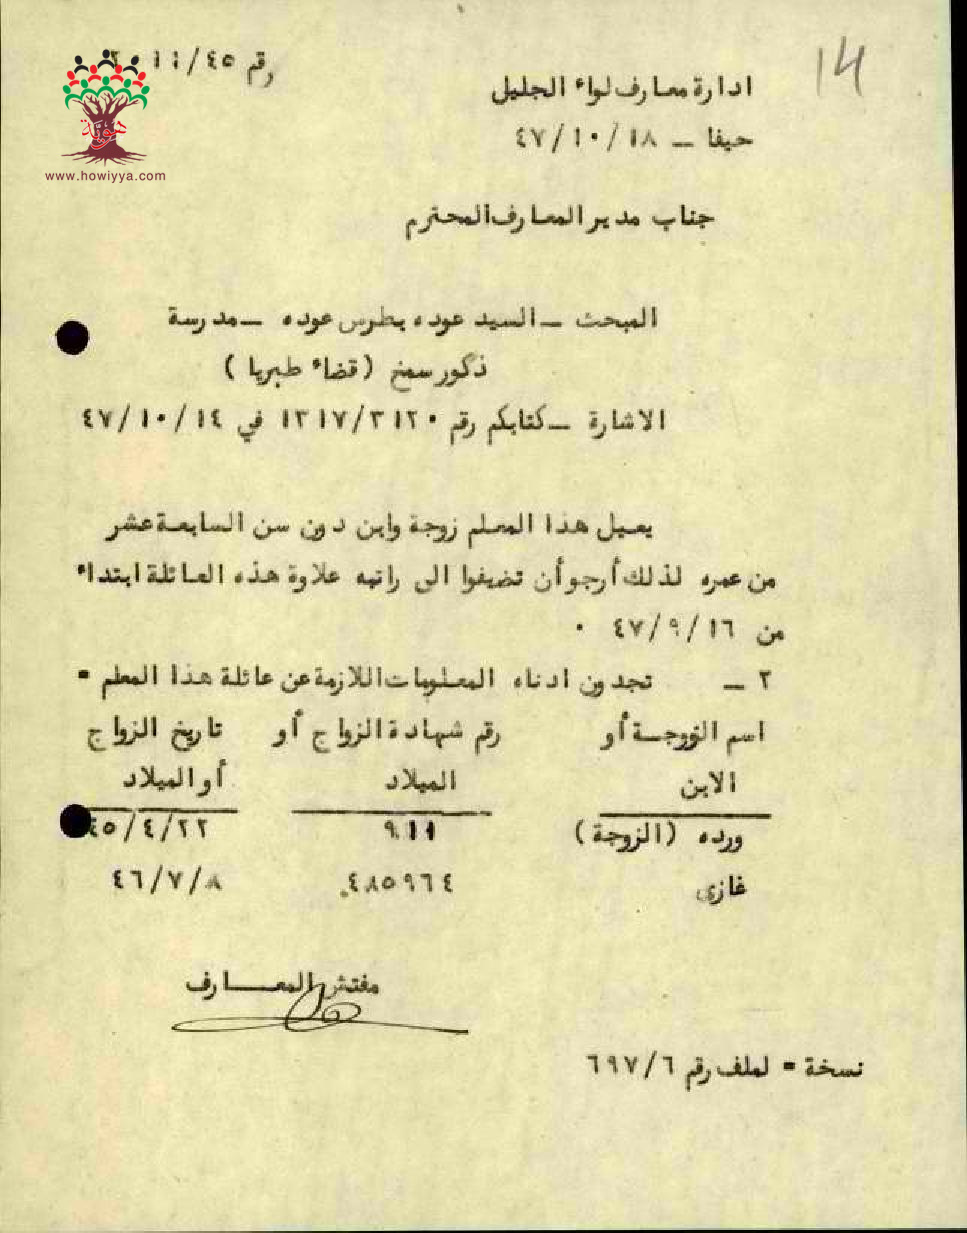 رقم ٤٥/١١
14
ادارة معارف لواء الجليل
حيفا – ١٨/١٠/٤٧
جناب مدير المعارف المحترم
المبحث – السيد عوده بطرس عوده – مدرسة
ذكور سمخ (قضاء طبريا)
الاشارة – كتابكم رقم ١٣١٧/٣١٢٠ في ١٤/١٠/٤٧
يعيل هذا المعلم زوجة وابن دون سن السابعة عشر
من عمره لذلك أرجو أن تضيفوا الى راتبه علاوة هذه العائلة ابتداء
من ١٦/٩/٤٧ ٠
٢ – تجدون ادناه المعلومات اللازمة عن عائلة هذا المعلم =
اسم الزوجة أو رقم شهادة الزواج أو تاريخ الزواج
الابن الميلاد أو الميلاد
ورده (الزوجة) ٩٠١١ ٢٢/٤/٤٥
غازى ٤٨٥٩٦٤ ٨/٧/٤٦
مفتش المعارف
نسخة = لملف رقم ٦٩٧/٦
هوية
www.howiyya.com